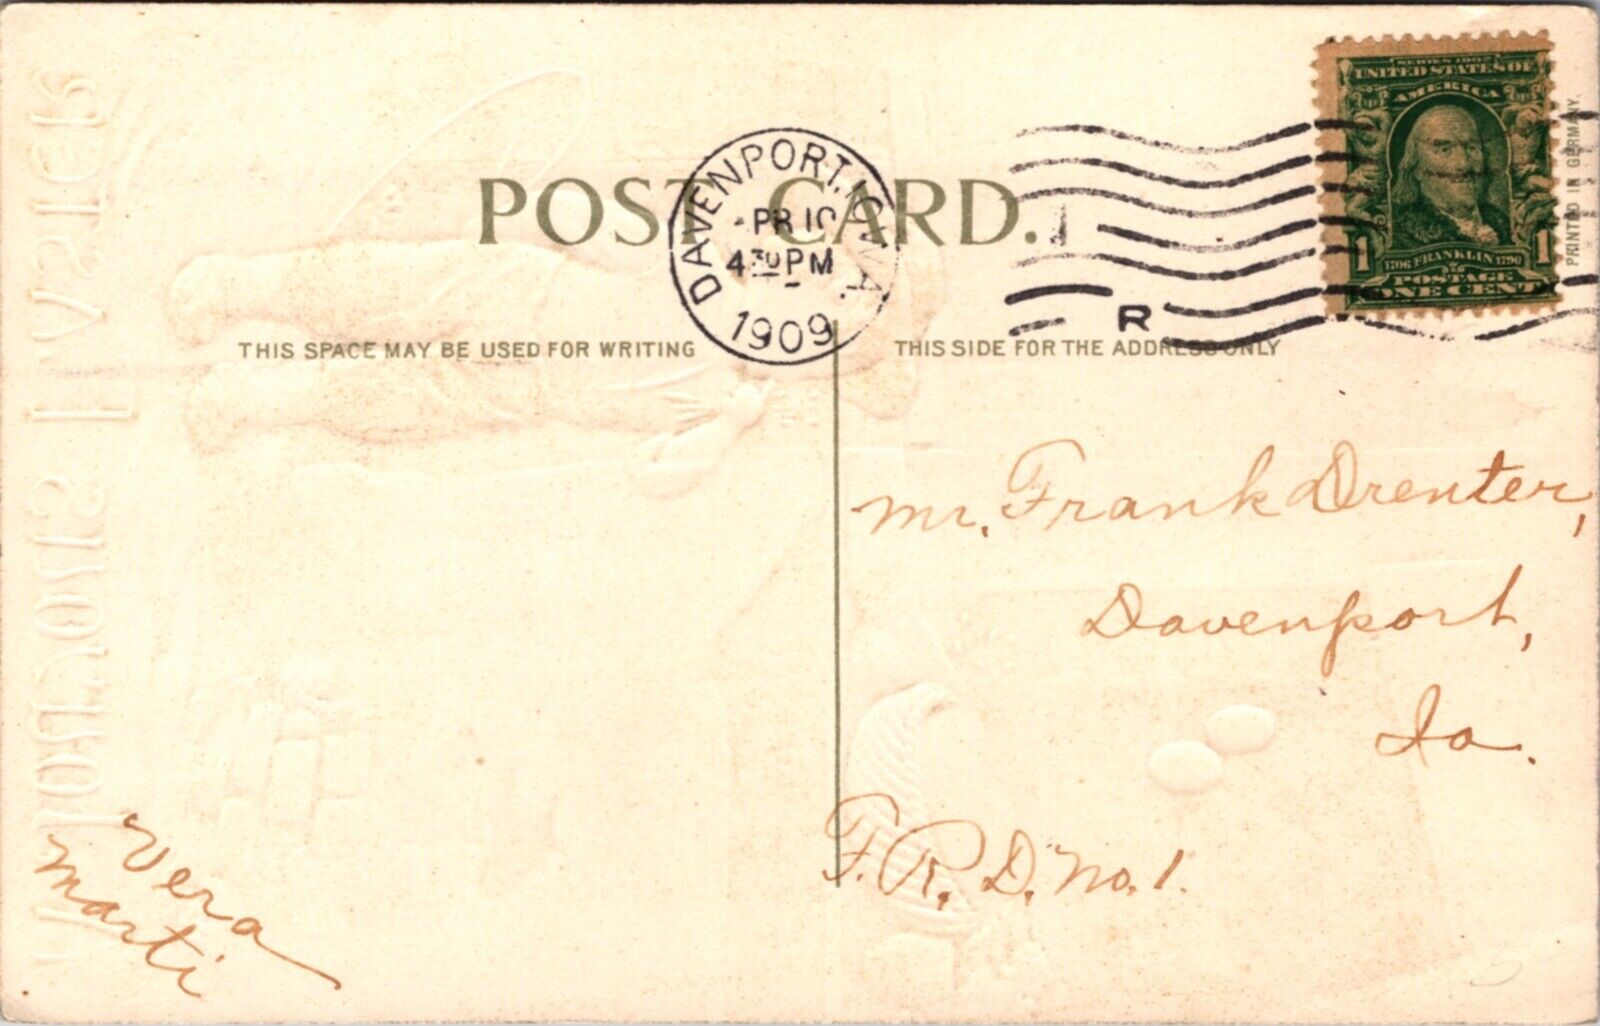 POST CARD.
DAVENPORT, IOWA.
PR 10
4 30 PM
1909
R
SERIES 1902
UNITED STATES OF
AMERICA
1706 FRANKLIN 1790
1 1
POSTAGE
ONE CENT
PRINTED IN GERMANY.
THIS SPACE MAY BE USED FOR WRITING
THIS SIDE FOR THE ADDRESS ONLY
Mr. Frank Drenter,
Davenport,
Ia.
F. R. D. No. 1.
Vera
Marti